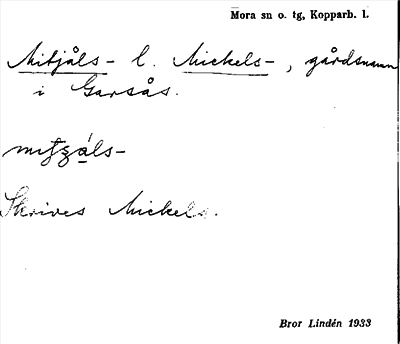 Mora sn o. tg, Kopparb. l.
Mitjåls- l. Mickels-, gårdsnamn
i Garsås.
Skrives Mickels.
Bror Lindén 1933